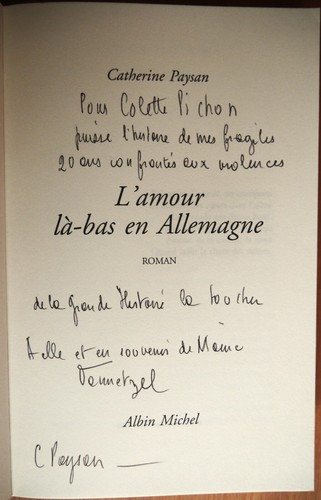 Catherine Paysan
Pour Colette Pichon
puisse l'histoire de mes fragiles
20 ans confrontés aux violences
L'amour
là-bas en Allemagne
ROMAN
de la grande Histoire la toucher
A elle et en souvenir de
Albin Michel
C Paysan